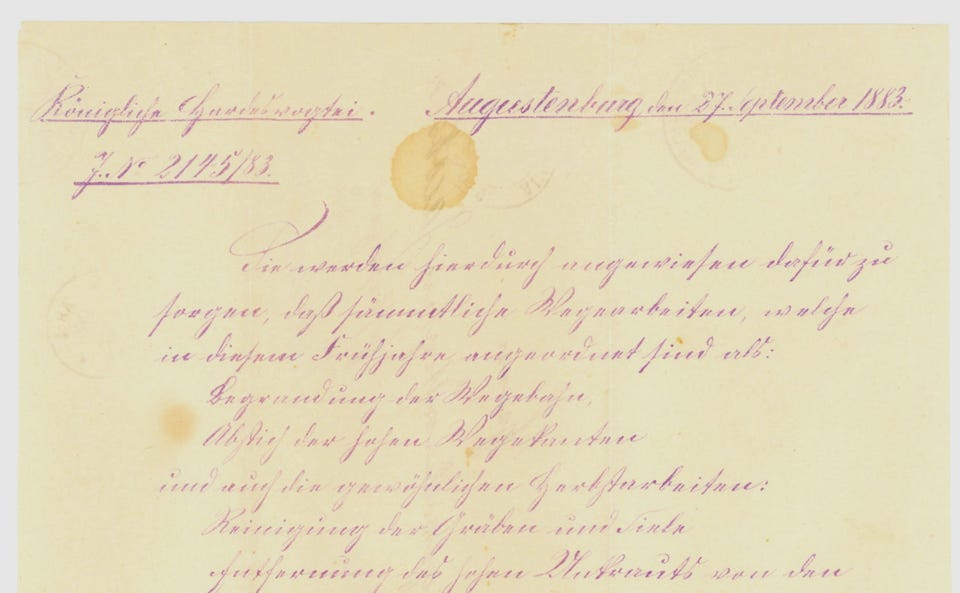 Königliche Hardesvogtei. Augustenburg den 27. September 1883.
J. No 2145/83.
Sie werden hierdurch angewiesen dafür zu
sorgen, daß sämmtliche Wegearbeiten, welche
in diesem Frühjahre angeordnet sind als:
Begrandung der Wegebahn,
Abstich der hohen Wegekanten
und auch die gewöhnlichen Herbstarbeiten:
Reinigung der Gräben und Siele
Entfernung des hohen Unkrauts von den